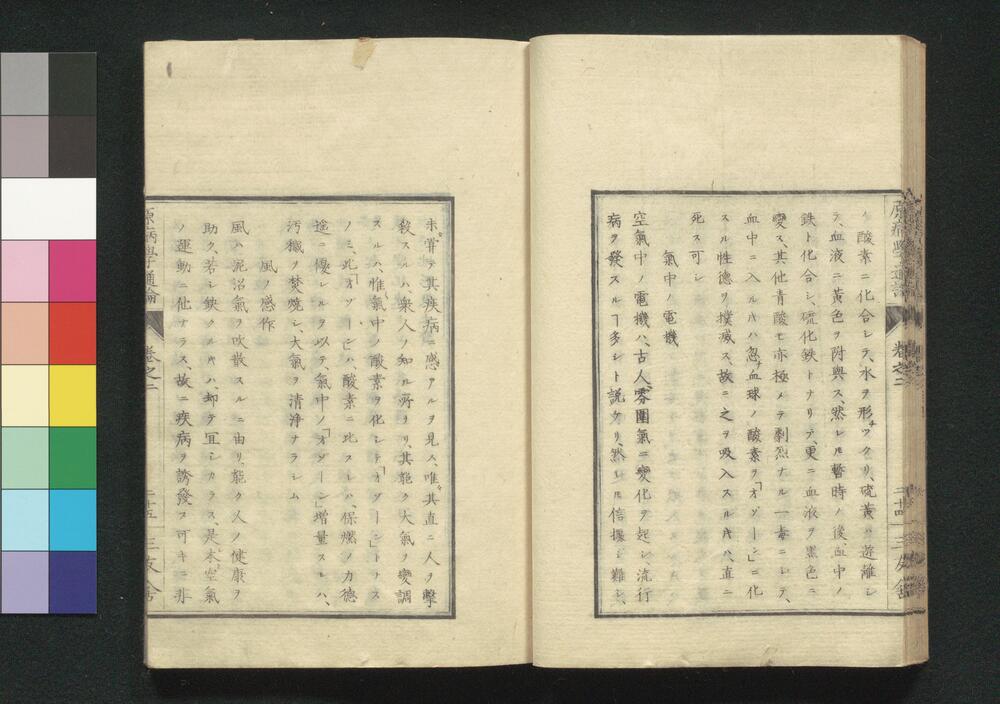 酸素ニ化合シテ、水ヲ形ツクリ、硫黄ハ遊離シ
テ、血液ニ黄色ヲ附與ス、然レㇶ暫時ノ後、血中ノ
鉄ト化合シ、硫化鉄トナリテ、更ニ血液ヲ黒色ニ
變ス、其他青酸モ亦極メテ劇烈ナル一毒ニシテ、
血中ニ入ルㇵ忽チ血球ノ酸素ヲ「オゾーン」ニ化
スルノ性德ヲ撲滅ス、故ニ之ヲ吸入スルㇵ、直ニ
死ス可シ
氣中ノ電機
空氣中ノ電機ハ、古人、雰圍氣ニ變化ヲ起シ流行
病ヲ發スルヿ多シト説ケリ、然レㇶ信據シ難シ、
未タ嘗テ其疾病ニ感アルヲ見ス、唯其直ニ人ヲ擊
殺スルハ、衆人ノ知ル所ナリ、其能ク大氣ヲ變調
スルハ、惟氣中ノ酸素ヲ化シテ「オゾーン」トナス
ノミ、此「オゾーン」ハ酸素ニ比スレハ、保燃ノ力德
遙ニ優レルヲ以テ、氣中ノ「オゾーン」增量スレハ、
汚穢ヲ焚燒シ、大氣ヲ清浄ナラシム
風ノ感作
風ハ泥沼氣ヲ吹散スルニ由リ、能ク人ノ健康ヲ
助ク、若シ鈌クルㇳハ、却テ宜シカラス、是本空氣
ノ運動ニ他ナラス、故ニ疾病ヲ誘發ス可キニ非
原病學通論
卷之二
二十五
三友舍